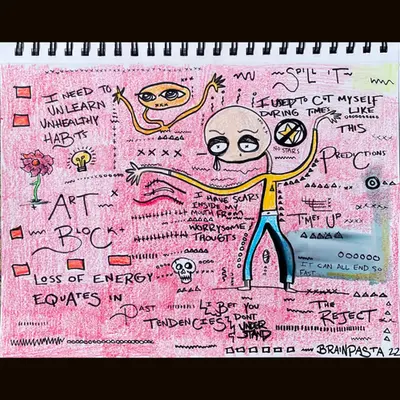 I NEED TO
UNLEARN
UNHEALTHY
HABITS
SPILL IT
I USED TO CUT MYSELF
DURING TIMES LIKE
THIS
NO STARS
XXXX
PREDCTIONS
ART
BLOCK
I HAVE SCARS
INSIDE MY
MOUTH FROM
WORRYSOME
THOUGTS
TIMES UP
IT CAN ALL END SO
FAST
LOSS OF ENERGY
EQUATES IN
PAST
TENDENCIES
I BET YOU
DONT
UNDER
STAND
THE
REJECT
BRAINPASTA 22